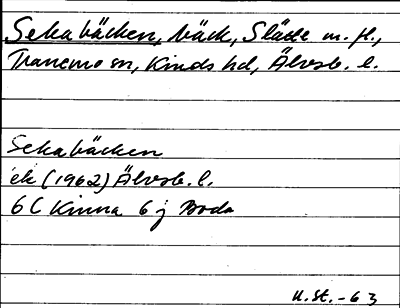 Sekabäcken, bäck, Släde m. fl.,
Tranemo sn, Kinds hd, Älvsb. l.
Sekabäcken
ek (1962) Älvsb. l.
6C Kinna 6 j Boda
U.St.-63